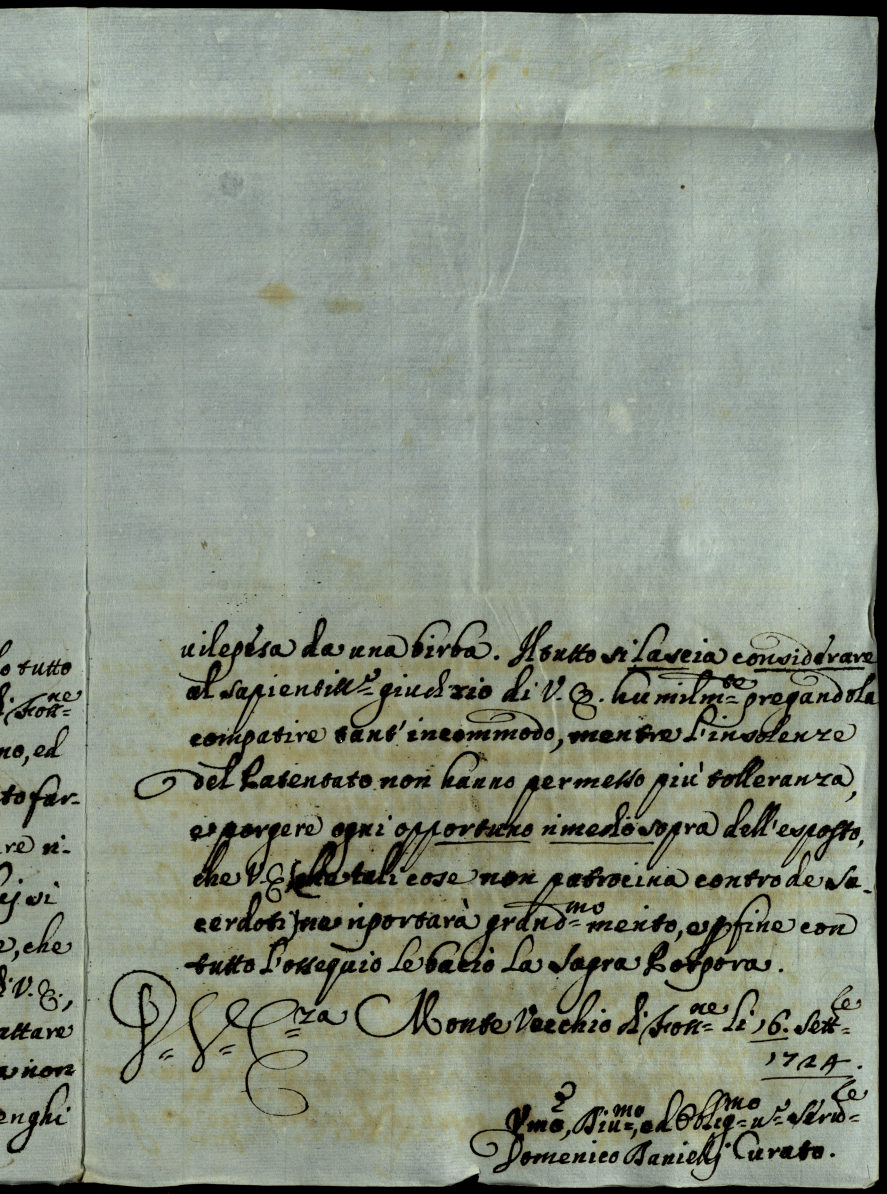 o tutto
di Fon.ne
no, ed
to far-
re ri-
si
e, che
di V. E.,
attare
a non
enghi
vilepesa da una birba. Il tutto si lascia considerare
al sapientiss.o giudizio di V. E. humilm.te pregandola
compatire tant' incommodo, mentre l'insolenze
del Patentato non hanno permesso più tolleranza,
e porgere ogni opportuno rimedio sopra dell'esposto,
che V. E. (che tali cose non patrocina contro de Sa-
cerdoti) ne riportarà grand.mo merito, e p fine con
tutto l'ossequio le bacio la Sagra Porpora.
D. V. E.za Monte Vecchio di Fon.ne li 16. Sett.le
1724.
Vmo, Diu.mo, ed Oblig.mo Seru.le
Domenico Danielij Curato.